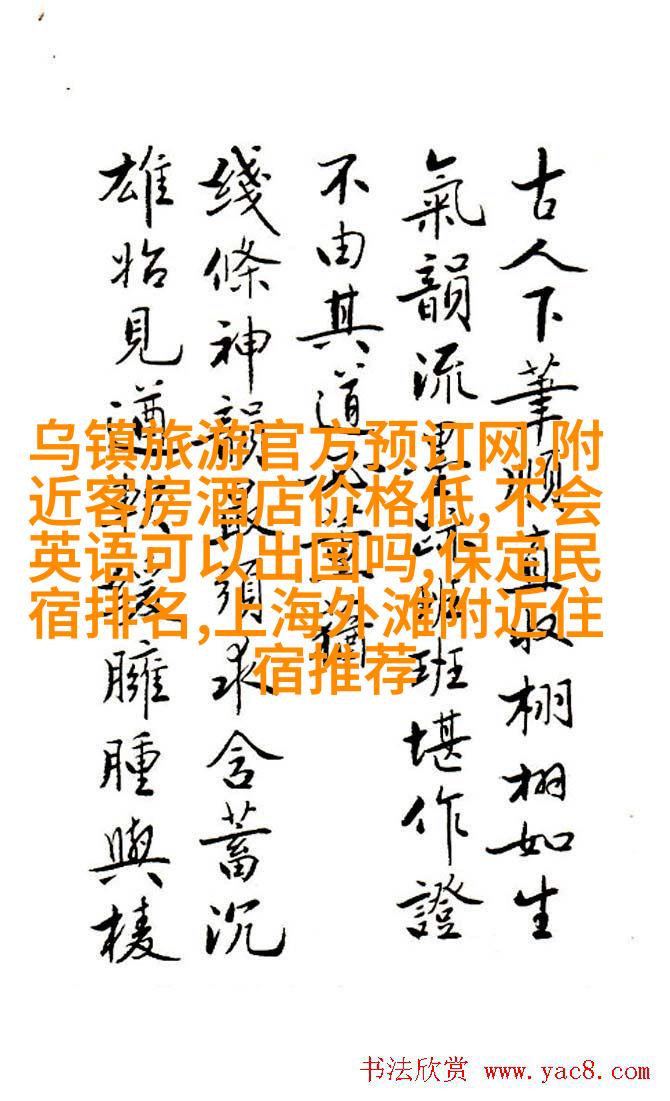 古人下筆直取栩栩如生
氣韻流班堪作證
不由其道
綫條神韻最須求含蓄沉
雄始見遒臃腫與棱
乌镇旅游官方预订网,附
近客房酒店价格低,不会
英语可以出国吗,保定民
宿排名,上海外滩附近住
宿推荐
书法欣赏 www.yac8.com